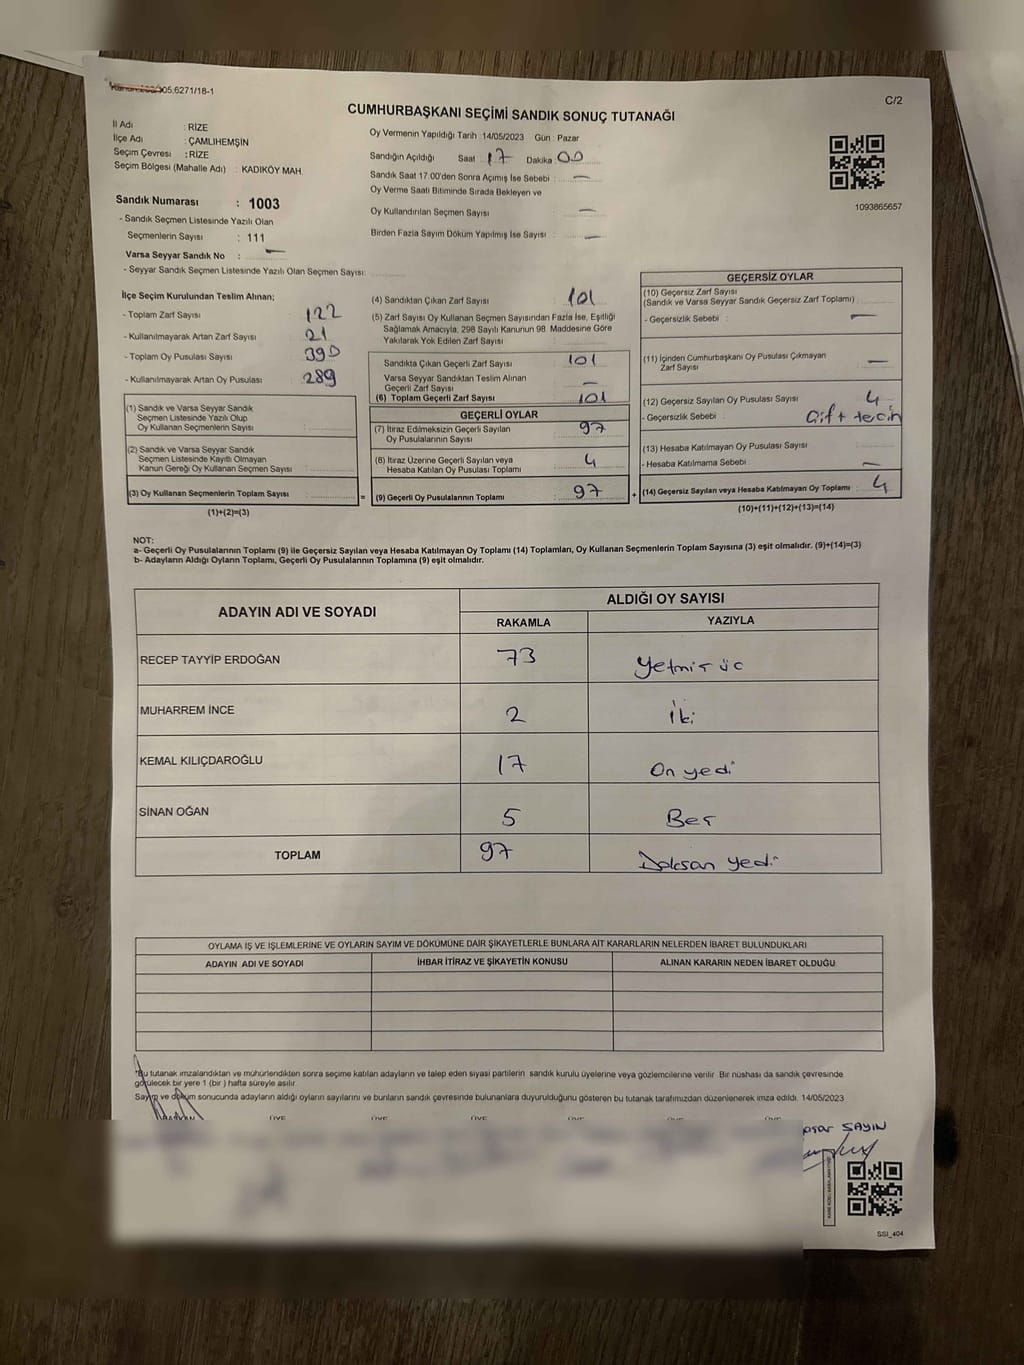 05.6271/18-1
C/2
CUMHURBAŞKANI SEÇİMİ SANDIK SONUÇ TUTANAĞI
İl Adı : RİZE
İlçe Adı : ÇAMLIHEMŞİN
Seçim Çevresi : RİZE
Seçim Bölgesi (Mahalle Adı) : KADIKÖY MAH.
Oy Vermenin Yapıldığı Tarih : 14/05/2023 Gün : Pazar
Sandığın Açıldığı Saat : 17 Dakika 00
Sandık Saat 17:00'den Sonra Açımış İse Sebebi : —
Oy Verme Saati Bitiminde Sırada Bekleyen ve
Oy Kullandırılan Seçmen Sayısı : —
Birden Fazla Sayım Döküm Yapılmış İse Sayısı : —
1093865657
Sandık Numarası : 1003
- Sandık Seçmen Listesinde Yazılı Olan
Seçmenlerin Sayısı : 111
Varsa Seyyar Sandık No : —
- Seyyar Sandık Seçmen Listesinde Yazılı Olan Seçmen Sayısı:
İlçe Seçim Kurulundan Teslim Alınan;
- Toplam Zarf Sayısı : 122
- Kullanılmayarak Artan Zarf Sayısı : 21
- Toplam Oy Pusulası Sayısı : 390
- Kullanılmayarak Artan Oy Pusulası : 289
(1) Sandık ve Varsa Seyyar Sandık
Seçmen Listesinde Yazılı Olup
Oy Kullanan Seçmenlerin Sayısı :
(2) Sandık ve Varsa Seyyar Sandık
Seçmen Listesinde Kayıtlı Olmayan
Kanun Gereği Oy Kullanan Seçmen Sayısı :
(3) Oy Kullanan Seçmenlerin Toplam Sayısı : =
(1)+(2)=(3)
(4) Sandıktan Çıkan Zarf Sayısı : 101
(5) Zarf Sayısı Oy Kullanan Seçmen Sayısından Fazla İse, Eşitliği
Sağlamak Amacıyla, 298 Sayılı Kanunun 98. Maddesine Göre
Yakılarak Yok Edilen Zarf Sayısı :
Sandıkta Çıkan Geçerli Zarf Sayısı : 101
Varsa Seyyar Sandıktan Teslim Alınan
Geçerli Zarf Sayısı : —
(6) Toplam Geçerli Zarf Sayısı : 101
GEÇERLİ OYLAR
(7) İtiraz Edilmeksizin Geçerli Sayılan : 97
Oy Pusulalarının Sayısı
(8) İtiraz Üzerine Geçerli Sayılan veya : 4
Hesaba Katılan Oy Pusulası Toplamı
(9) Geçerli Oy Pusulalarının Toplamı : 97 +
GEÇERSİZ OYLAR
(10) Geçersiz Zarf Sayısı
(Sandık ve Varsa Seyyar Sandık Geçersiz Zarf Toplamı) :
- Geçersizlik Sebebi : —
(11) İçinden Cumhurbaşkanı Oy Pusulası Çıkmayan
Zarf Sayısı : —
(12) Geçersiz Sayılan Oy Pusulası Sayısı : 4
- Geçersizlik Sebebi : Çift tecih
(13) Hesaba Katılmayan Oy Pusulası Sayısı :
- Hesaba Katılmama Sebebi : —
(14) Geçersiz Sayılan veya Hesaba Katılmayan Oy Toplamı : 4
(10)+(11)+(12)+(13)=(14)
NOT:
a- Geçerli Oy Pusulalarının Toplamı (9) ile Geçersiz Sayılan veya Hesaba Katılmayan Oy Toplamı (14) Toplamları, Oy Kullanan Seçmenlerin Toplam Sayısına (3) eşit olmalıdır. (9)+(14)=(3)
b- Adayların Aldığı Oyların Toplamı, Geçerli Oy Pusulalarının Toplamına (9) eşit olmalıdır.
ADAYIN ADI VE SOYADI
ALDIĞI OY SAYISI
RAKAMLA YAZIYLA
RECEP TAYYİP ERDOĞAN 73 Yetmiş üç
MUHARREM İNCE 2 İki
KEMAL KILIÇDAROĞLU 17 On yedi
SİNAN OĞAN 5 Beş
TOPLAM 97 Doksan yedi
OYLAMA İŞ VE İŞLEMLERİNE VE OYLARIN SAYIM VE DÖKÜMÜNE DAİR ŞİKAYETLERLE BUNLARA AİT KARARLARIN NELERDEN İBARET BULUNDUKLARI
ADAYIN ADI VE SOYADI İHBAR İTİRAZ VE ŞİKAYETİN KONUSU ALINAN KARARIN NEDEN İBARET OLDUĞU
*Bu tutanak imzalandıktan ve mühürlendikten sonra seçime katılan adayların ve talep eden siyasi partilerin sandık kurulu üyelerine veya gözlemcilerine verilir. Bir nüshası da sandık çevresinde
görülecek bir yere 1 (bir) hafta süreyle asılır.
Sayım ve döküm sonucunda adayların aldığı oyların sayılarını ve bunların sandık çevresinde bulunanlara duyurulduğunu gösteren bu tutanak tarafımızdan düzenlenerek imza edildi. 14/05/2023
SAYIN
SSI_404